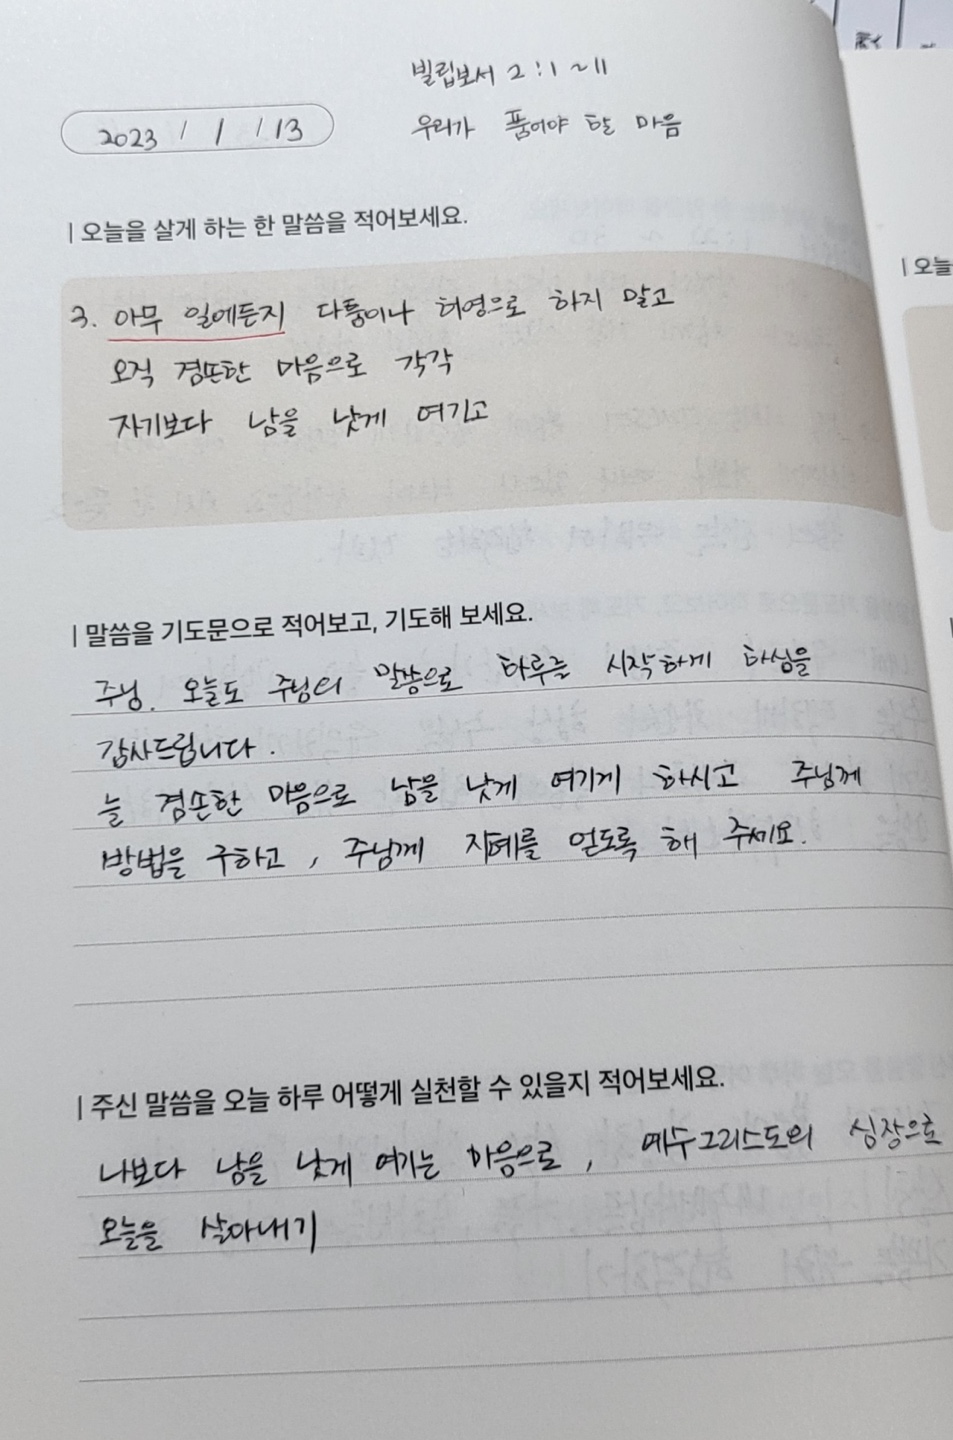 빌립보서 2:1~11
2023 / 1 / 13
우리가 품어야 할 마음
| 오늘을 살게 하는 한 말씀을 적어보세요.
3. 아무 일에든지 다툼이나 허영으로 하지 말고
오직 겸손한 마음으로 각각
자기보다 남을 낫게 여기고
| 말씀을 기도문으로 적어보고, 기도해 보세요.
주님. 오늘도 주님의 말씀으로 하루를 시작하게 하심을
감사드립니다.
늘 겸손한 마음으로 남을 낫게 여기게 하시고 주님께
방법을 구하고, 주님께 지혜를 얻도록 해 주세요.
| 주신 말씀을 오늘 하루 어떻게 실천할 수 있을지 적어보세요.
나보다 남을 낫게 여기는 마음으로, 예수그리스도의 심장으로
오늘을 살아내기
| 오늘